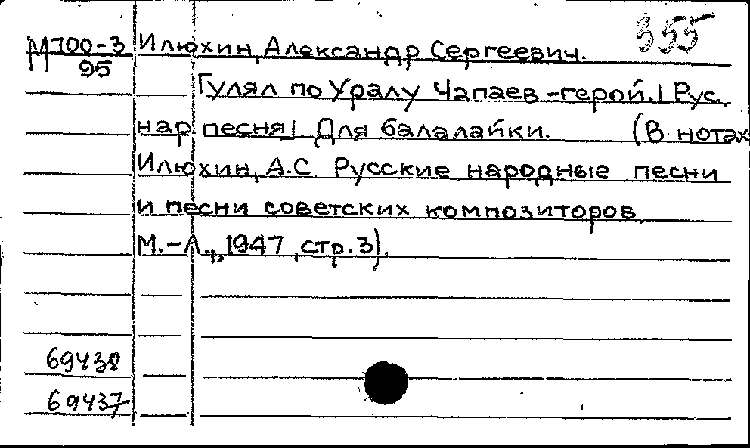 355
М700-3 Илюхин, Александр Сергеевич.
95
Гулял по Уралу Чапаев-герой. | Рус.
нар песня | Для балалайки. (В нотах
Илюхин, А.С. Русские народные песни
и песни советских композиторов
М.-Л., 1947, стр. 3).
69438
69437